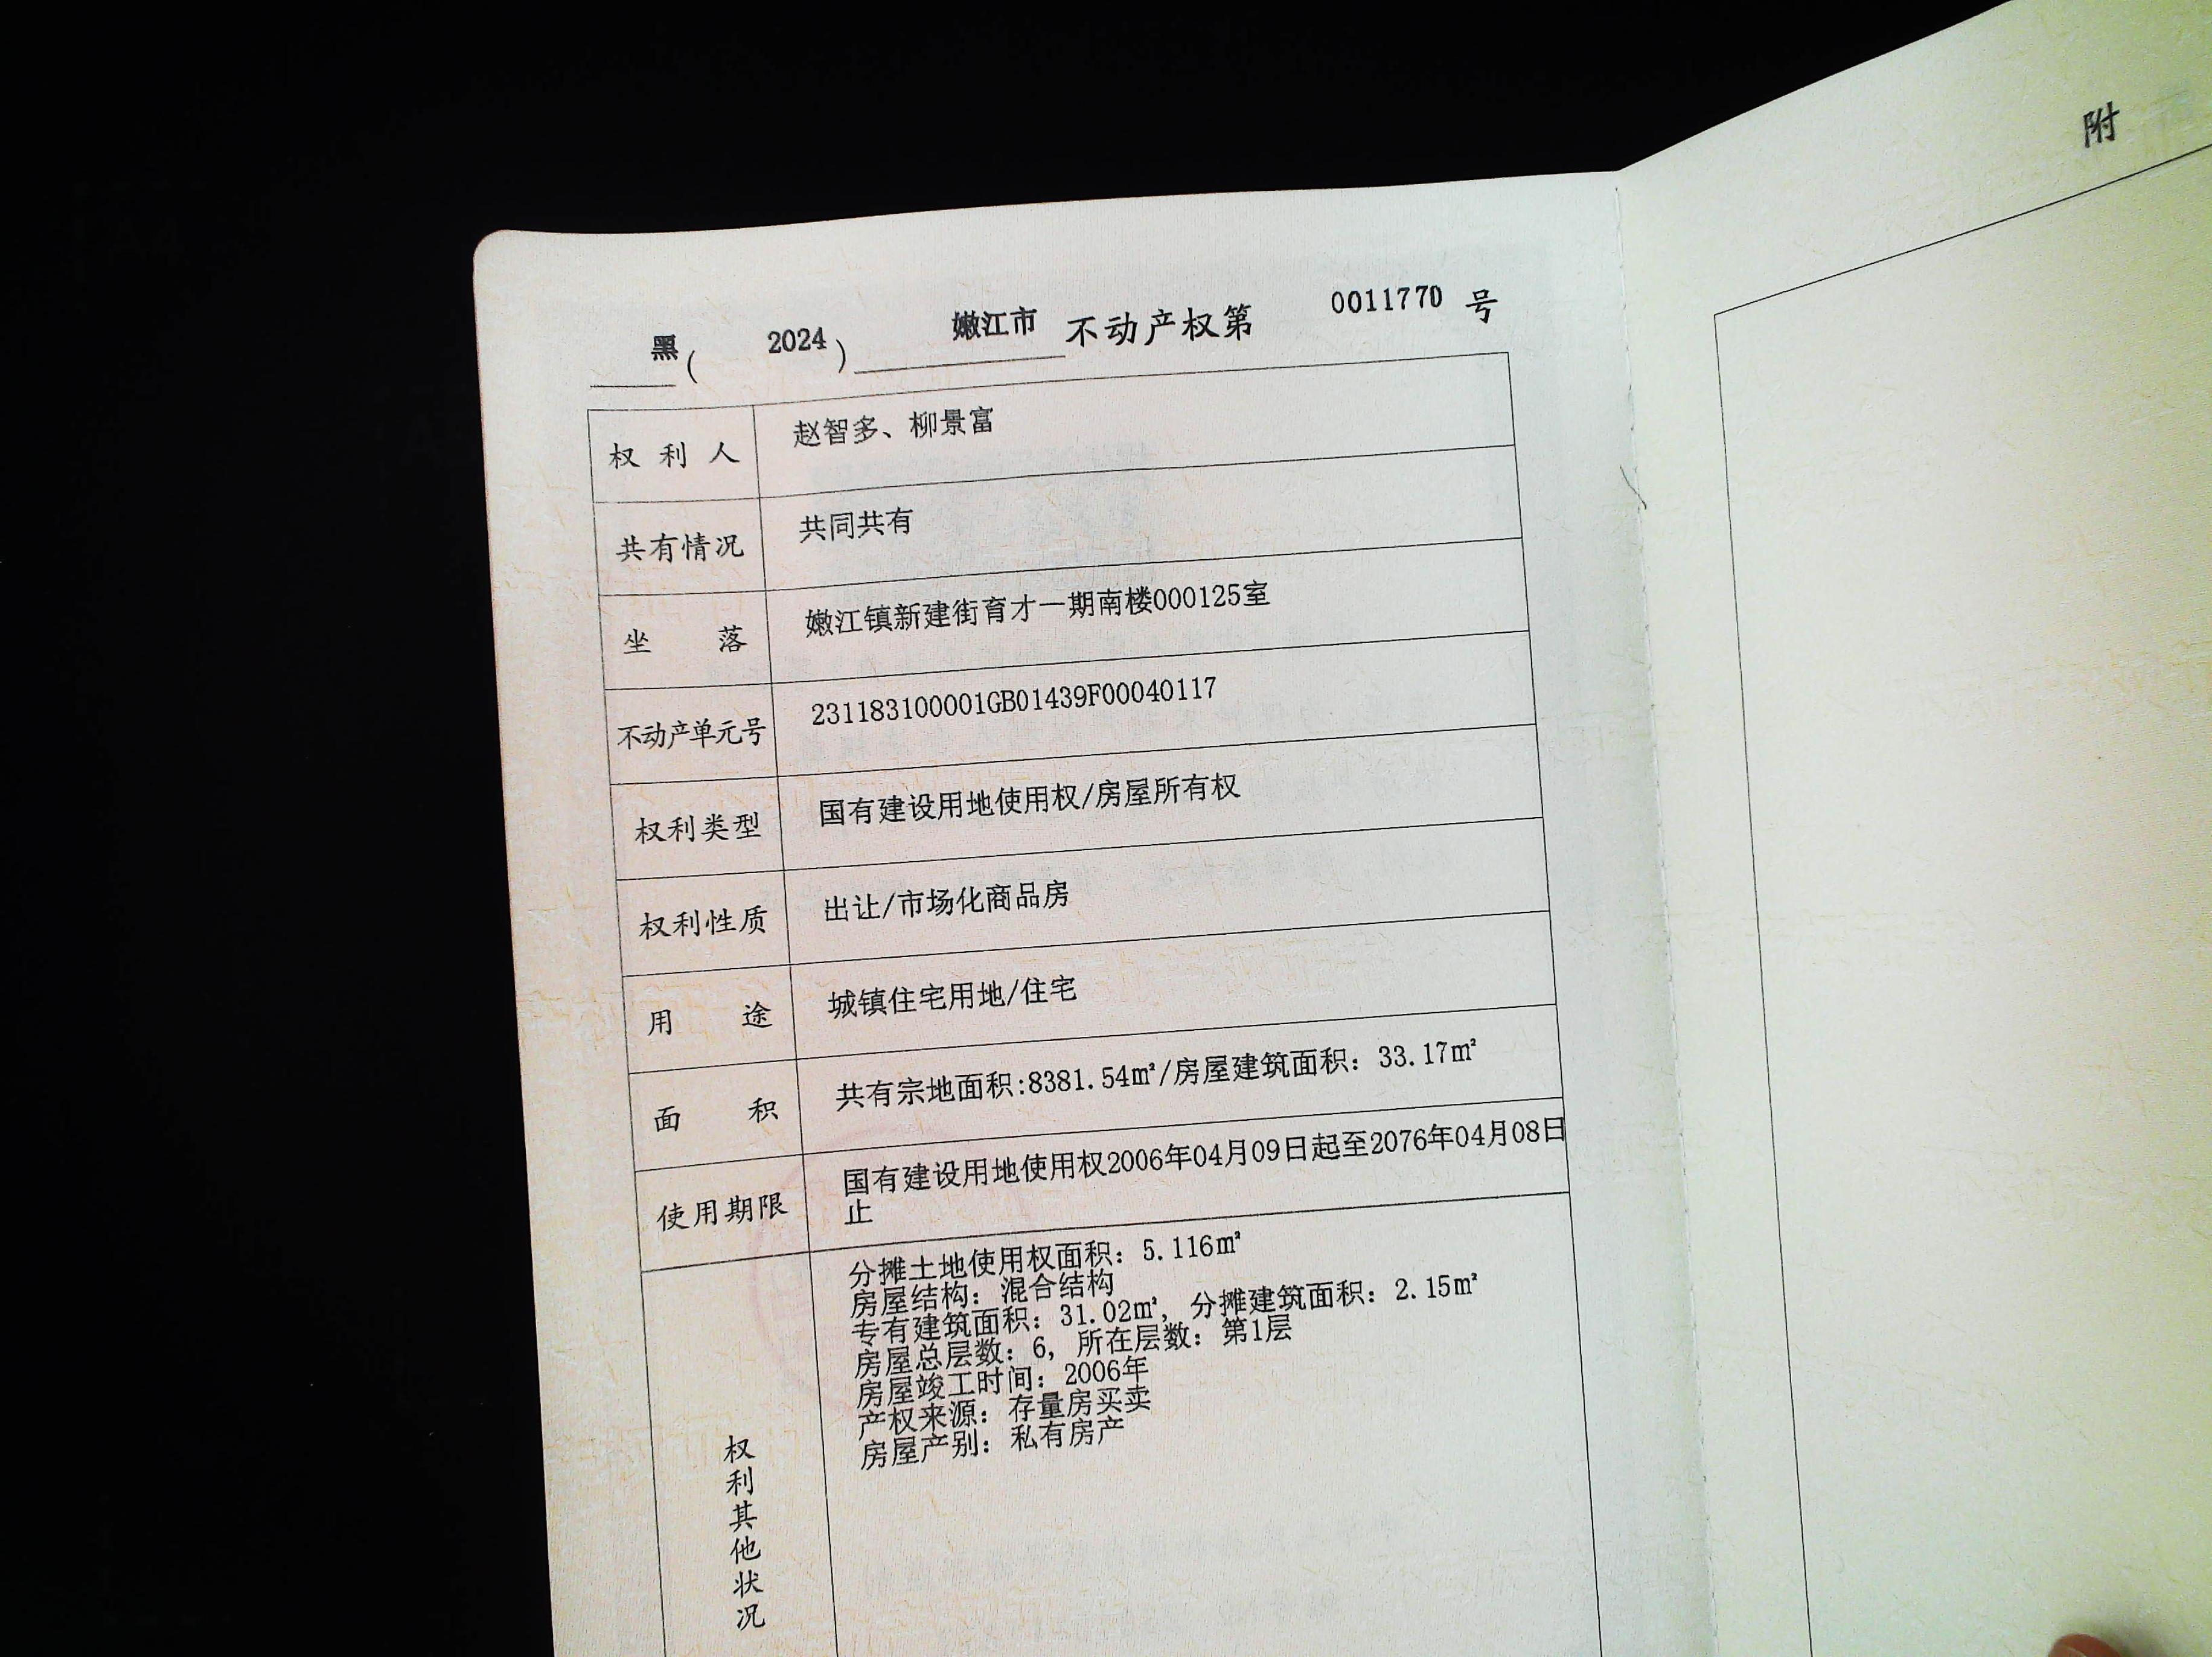 黑(2024)嫩江市不动产权第0011770号
权利人 赵智多、柳景富
共有情况 共同共有
坐落 嫩江镇新建街育才一期南楼000125室
不动产单元号 231183100001GB01439F00040117
权利类型 国有建设用地使用权/房屋所有权
权利性质 出让/市场化商品房
用途 城镇住宅用地/住宅
面积 共有宗地面积:8381.54㎡/房屋建筑面积：33.17㎡
使用期限 国有建设用地使用权2006年04月09日起至2076年04月08日
止
权利其他状况
分摊土地使用权面积：5.116㎡
房屋结构：混合结构
专有建筑面积：31.02㎡，分摊建筑面积：2.15㎡
房屋总层数：6，所在层数：第1层
房屋竣工时间：2006年
产权来源：存量房买卖
房屋产别：私有房产
附